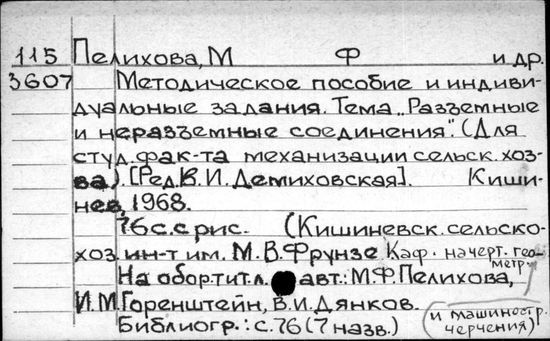 115 Пелихова, М Ф и др.
3607 Методическое пособие и индиви-
дуальные задания. Тема „Разъемные
и неразъемные соединения". (Для
студ. фак-та механизации сельск. хоз-
ва). [Ред. В. И. Демиховская]. Киши-
нев, 1968.
76 с. с рис. (Кишиневск. сельско-
хоз. ин-т им. М. В. Фрунзе Каф. начерт. гео-
метр.
На обор. тит. л. авт.: М. Ф. Пелихова,
И. М. Горенштейн, В. И. Дянков.
(и машиностр.
черчения)
Библиогр.: с. 76 (7 назв.)